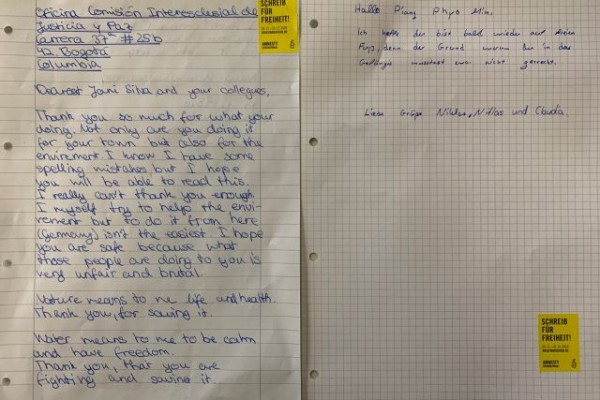 Oficina Comisión Intereclesial de
Justicia y Paz
Carrera 37ª #25b
42. Bogotá
Columbia
Dearest Jani Silva and your collegues,
Thank you so much for what your
doing. Not only are you doing is
for your town but also for the
enviroment. I know I have some
spelling mistakes but I hope
you will be able to read this.
I really can't thank you enough.
I myself try to help the envi-
rement but to do it from here
(Germany) isn't the easiest. I hope
you are safe because what
those people are doing to you is
very unfair and brutal.
Nature means to me life and health.
Thank you, for saving it.
Water means to me to be calm
and have freedom.
Thank you, that you are
fighting and saving it.
SCHREIB
FÜR
FREIHEIT!
AMNESTY
Hallo Piang Phyo Min,
Ich hoffe du bist bald wieder auf freien
Fuß, denn der Grund warum du in das
Gefängis musstest war nicht gerecht.
Liebe Grüße Nikita, Niklas und Claudia
SCHREIB
FÜR
FREIHEIT!
AMNESTY